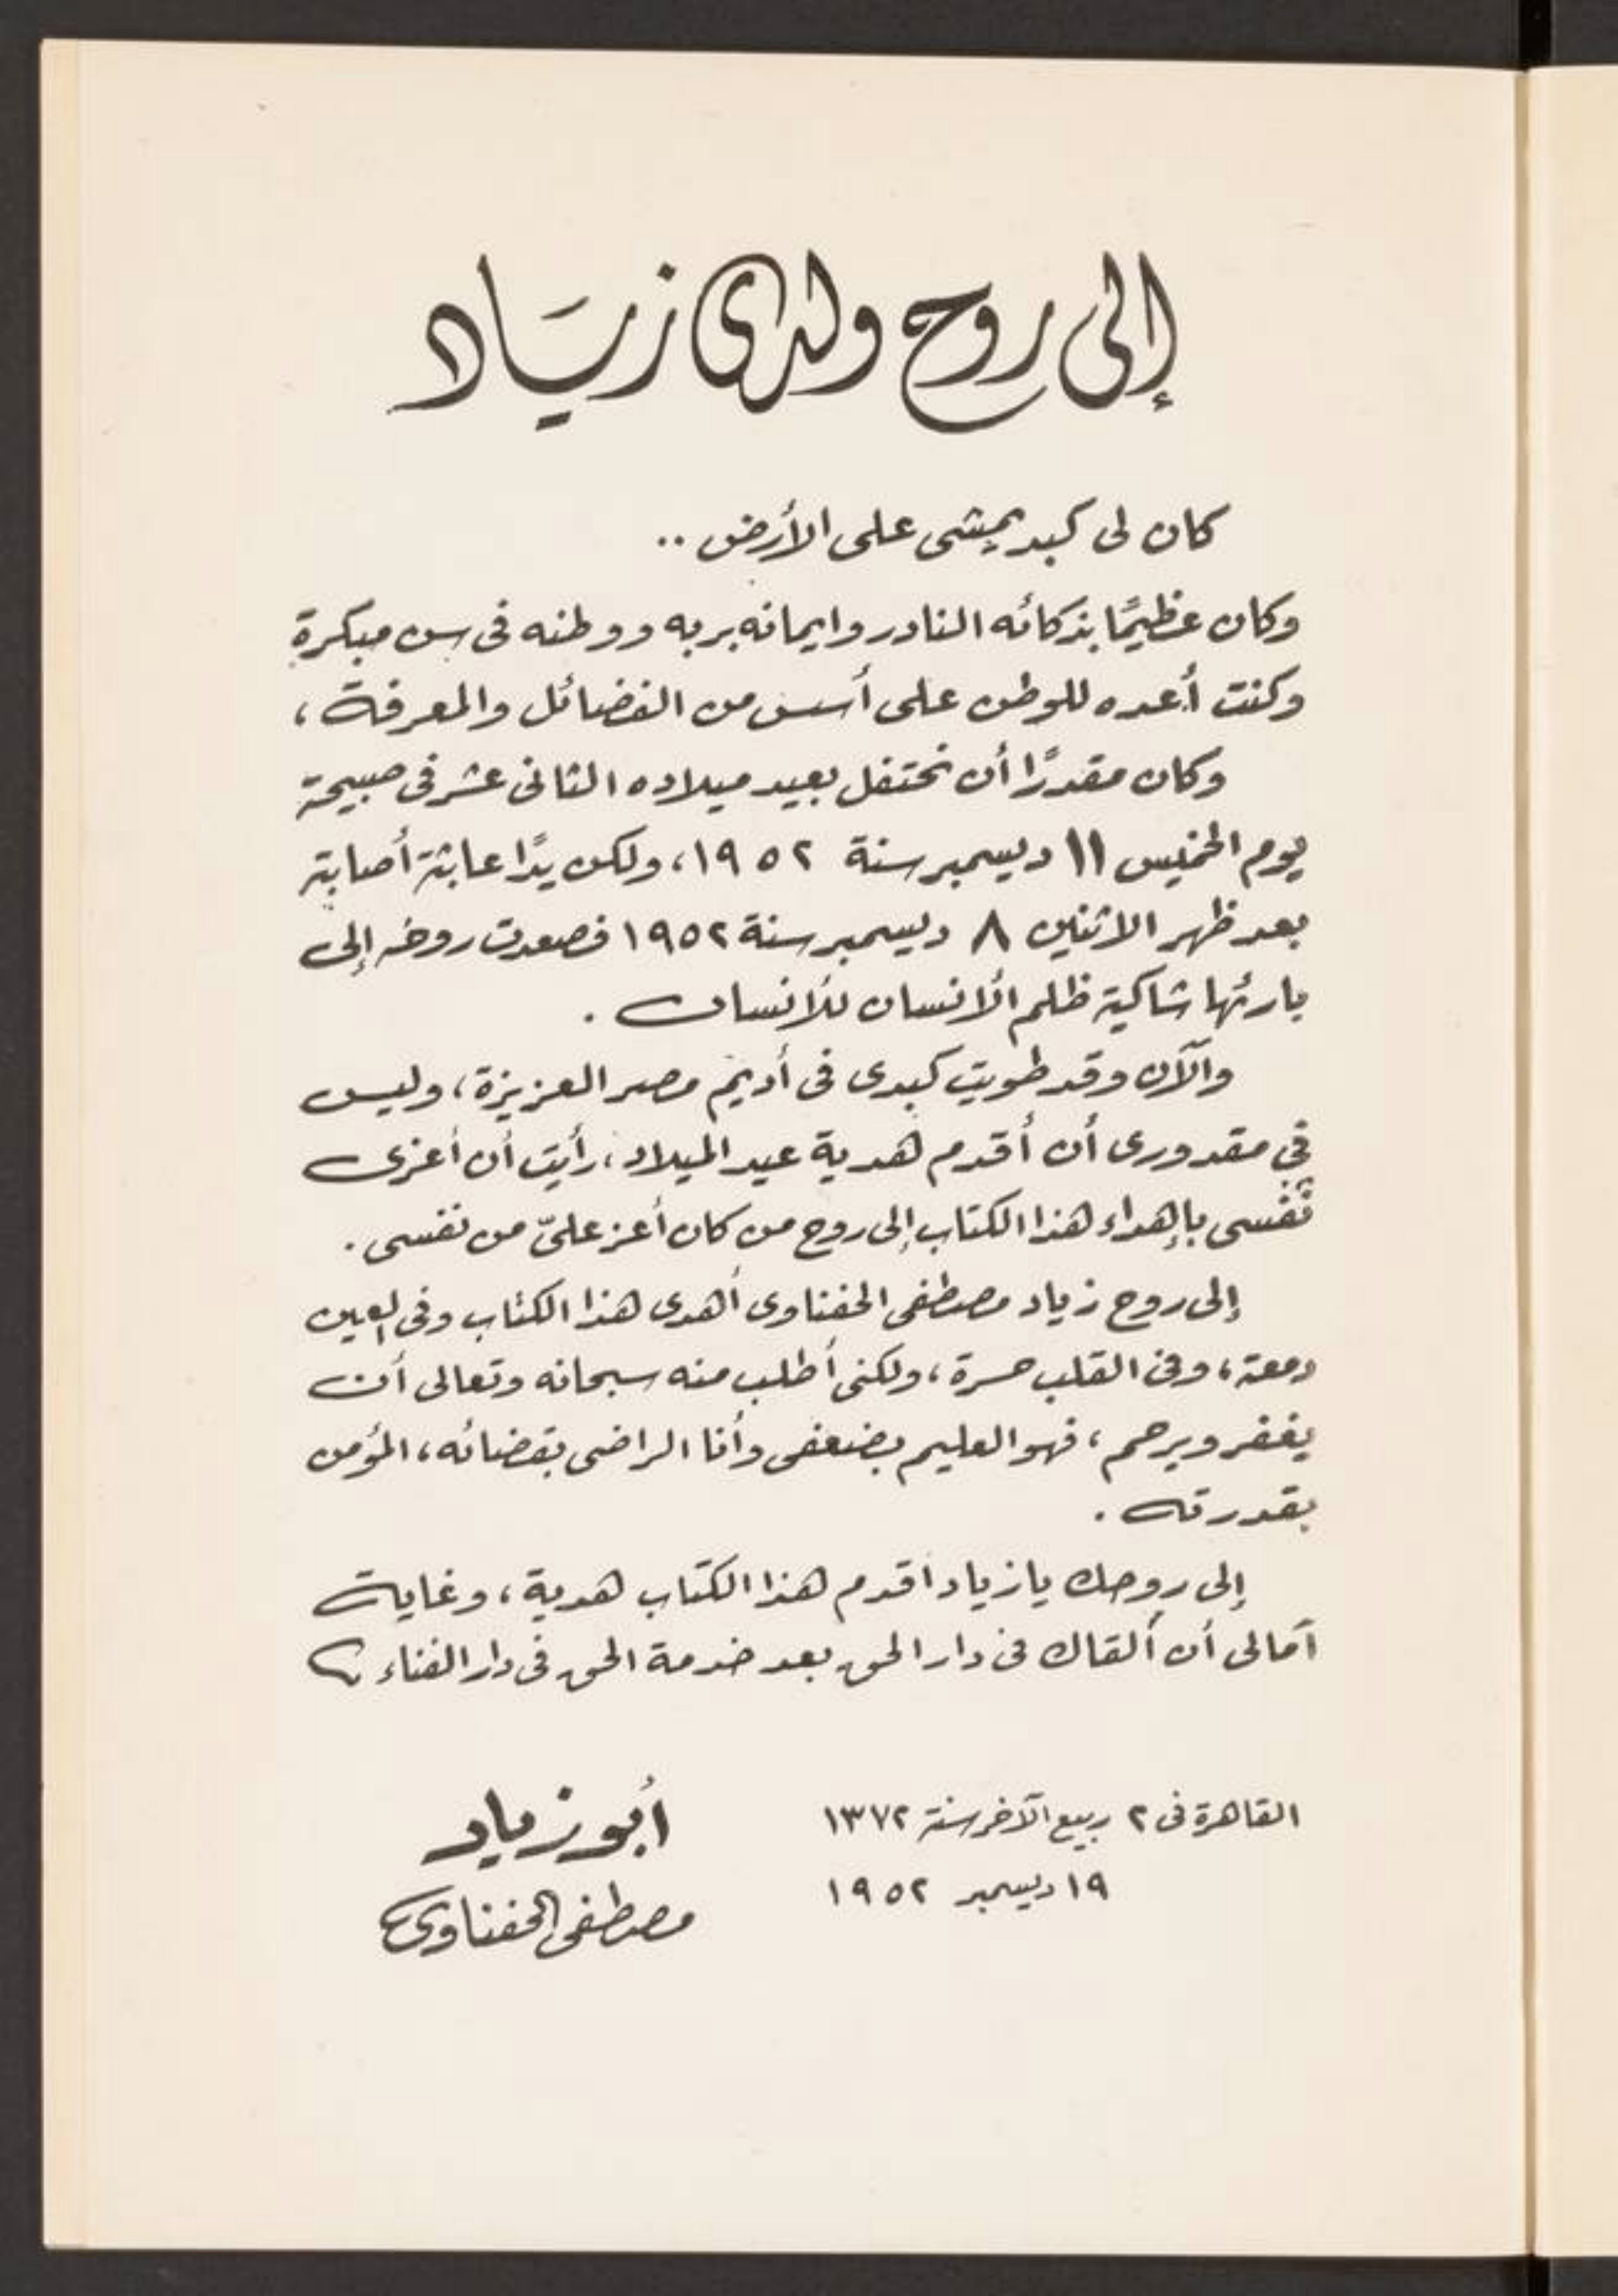 إلى روح ولدى زيَاد
كان لى كبد يمشى على الأرض ..
وكان عظيمًا بذكائه النادر وايمانه بربه ووطنه فى سن مبكرة
وكنت أعده للوطن على أسس من الفضائل والمعرفة ،
وكان مقدرًا أن نحتفل بعيد ميلاده الثانى عشر فى صبيحة
يوم الخميس ١١ ديسمبر سنة ١٩٥٢ ، ولكن يدًا عابثة أصابته
بعد ظهر الاثنين ٨ ديسمبر سنة ١٩٥٢ فصعدت روحه إلى
بارئها شاكية ظلم الأنسان للأنسان .
والآن وقد طويت كبدى فى أديم مصر العزيزة ، وليس
فى مقدورى أن أقدم هدية عيد الميلاد ، رأيت أن أعزى
نفسى بإهداء هذا الكتاب إلى روح من كان أعز علىّ من نفسى .
إلى روح زياد مصطفى الحفناوى أهدى هذا الكتاب وفى العين
دمعة ، وفى القلب حسرة ، ولكنى أطلب منه سبحانه وتعالى أن
يغفر ويرحم ، فهو العليم بضعفى وأنا الراضى بقضائه ، المؤمن
بقدرته .
إلى روحك يا زياد أقدم هذا الكتاب هدية ، وغاية
آمالى أن ألقاك فى دار الحق بعد خدمة الحق فى دار الفناء
القاهرة فى ٢ ربيع الآخر سنة ١٣٧٢
١٩ ديسمبر ١٩٥٢
أبو زياد
مصطفى الحفناوى